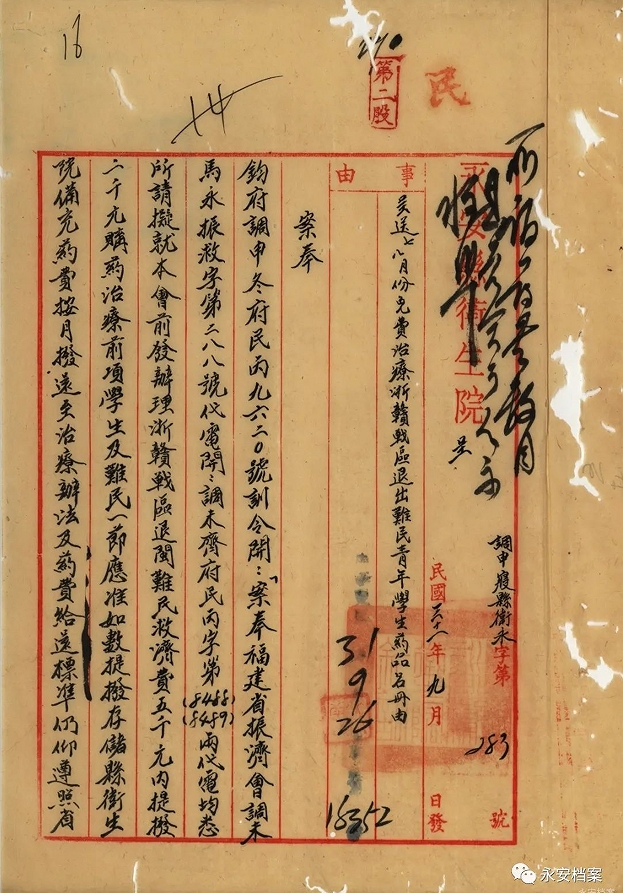 16
270
第二股
民
永安縣衛生院
呈
調申寢縣衛永字第
283
號
民國三十一年九月
日發
事由
呈送七八月份免費治療浙贛戰區退出難民青年學生藥品名冊由
31
9
26
18352
案奉
鈞府調申冬府民丙九六二〇號訓令開：「案奉福建省振濟會調未
馬永振救字第二八八號代電開：調未齊府民丙字第(8488)(8489)兩代電均悉
所請擬就本會前發辦理浙贛戰區退閩難民救濟費五千元內提撥
二千元購藥治療前項學生及難民一節應准如數提撥存儲縣衛生
院備充藥費按月撥送至治療辦法及藥費給送標準仍仰遵照省
永安档案